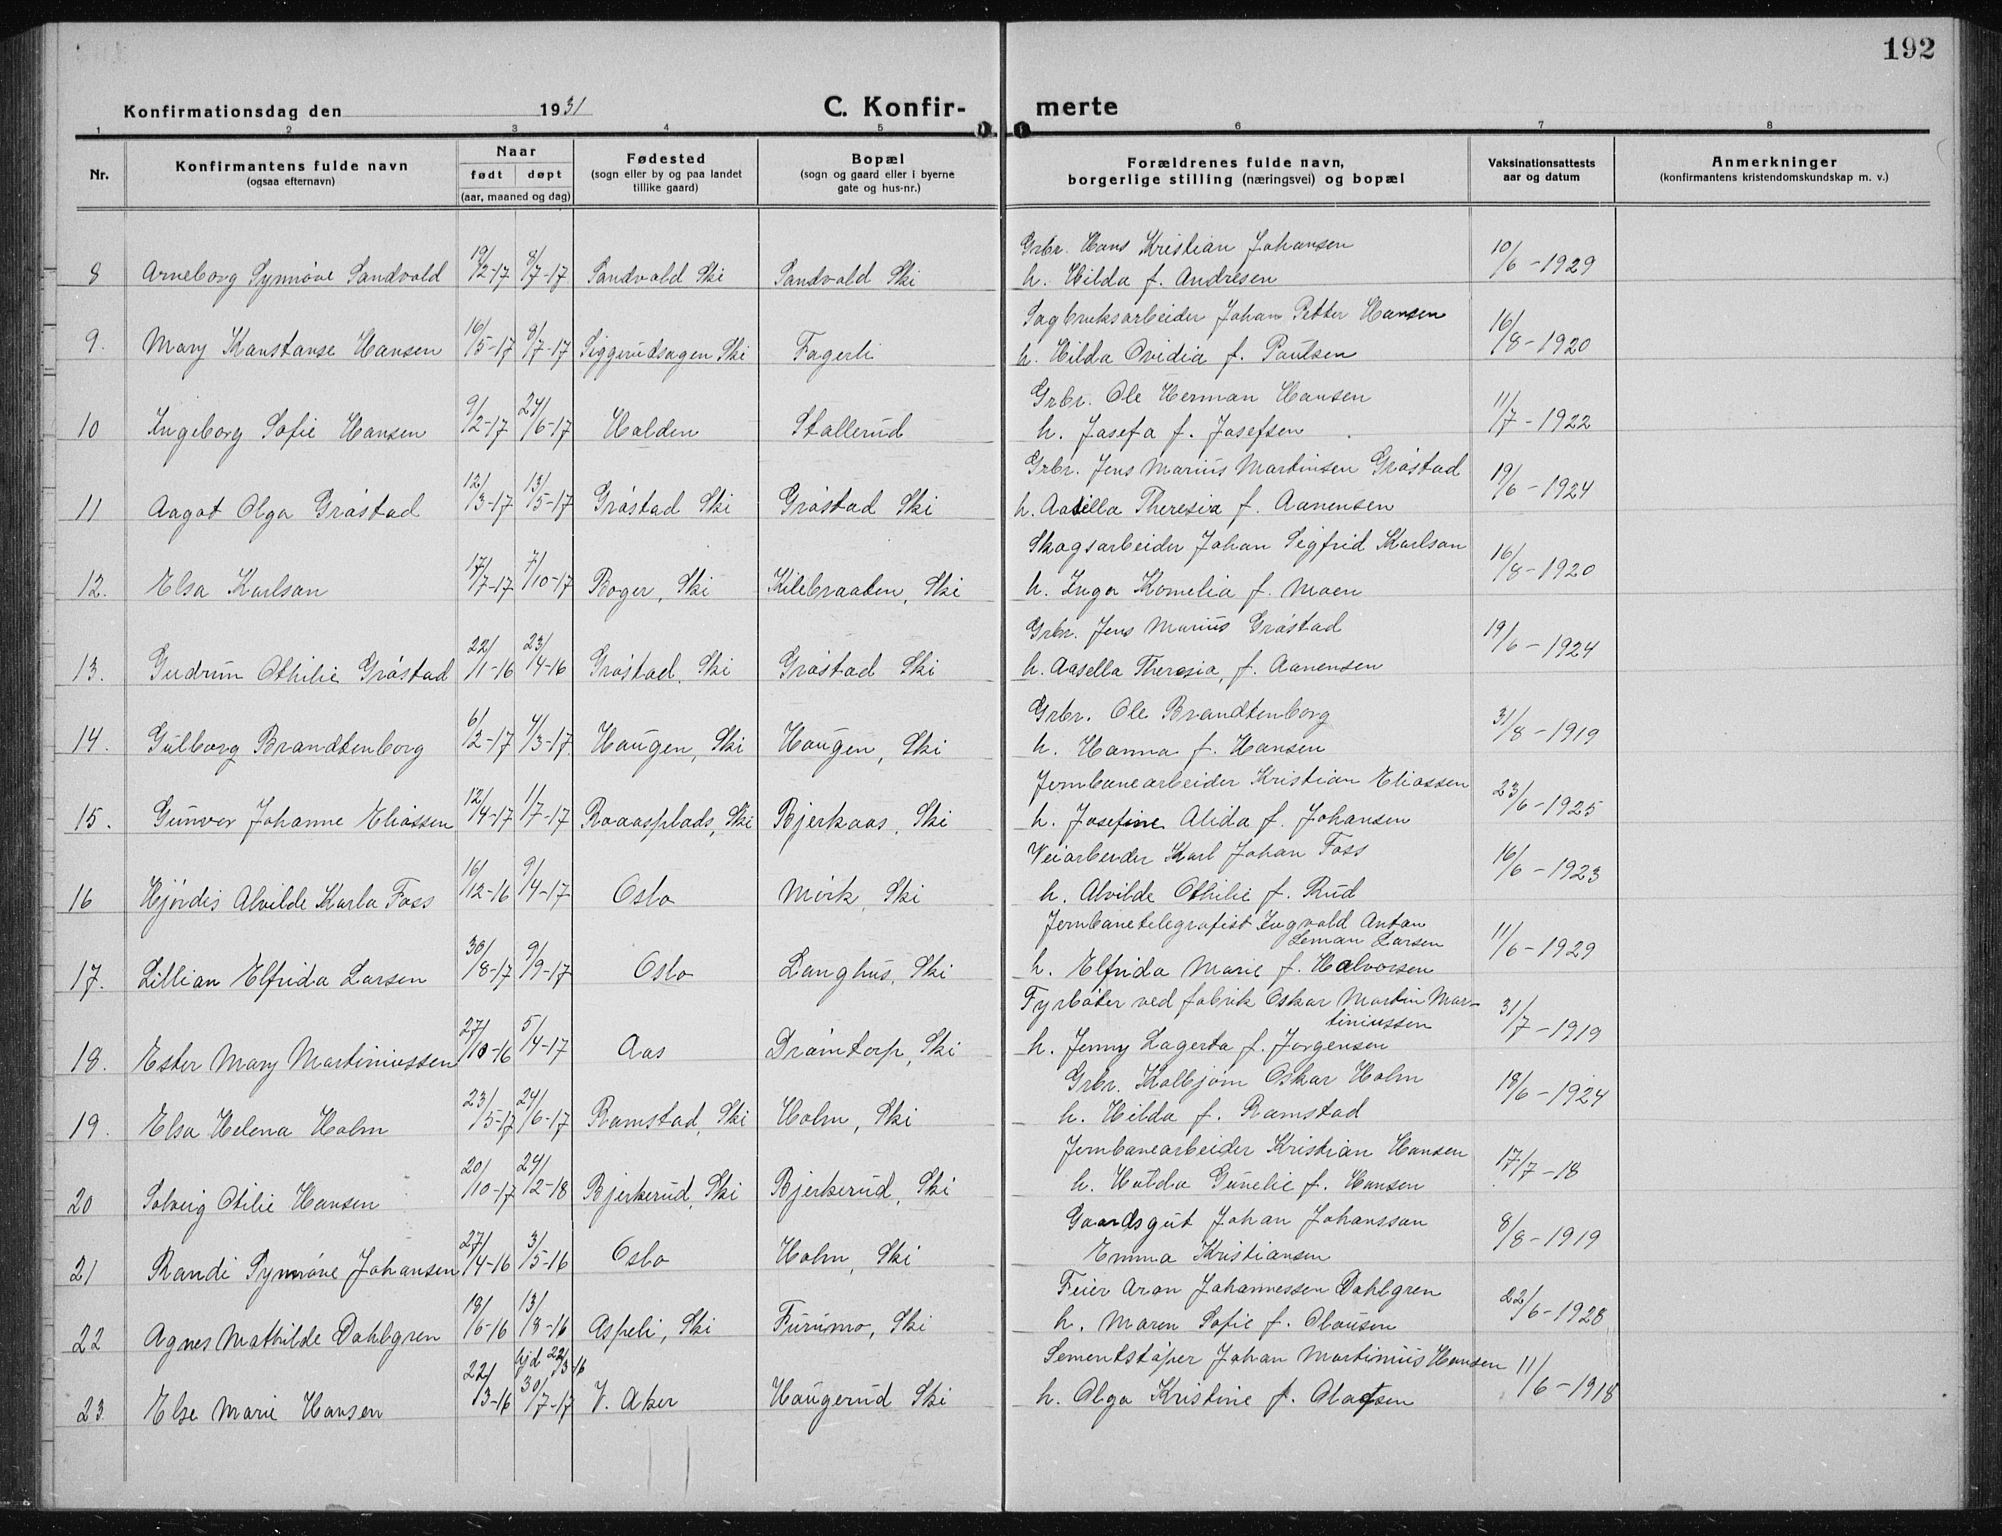 192
Konfirmationsdag den 1931 C. Konfir- merte
1 2 3 4 5 6 7 8
Nr. Konfirmantens fulde navn (ogsaa efternavn) Naar født døpt (aar, maaned og dag) Fødested (sogn eller by og paa landet tillike gaard) Bopæl (sogn og gaard eller i byerne gate og hus-nr.) Forældrenes fulde navn, borgerlige stilling (næringsvei) og bopæl Vaksinationsattests aar og datum Anmerkninger (konfirmantens kristendomskundskap m. v.)
Grbr. Hans Kristian Johansen
8 Arneborg Synnøve Sandvold 19/2-17 8/7-17 Sandvold Ski Sandvold Ski h. Hilda f. Andresen 10/6-1929
Sagbruksarbeider Johan Petter Hansen
9. Mary Konstanse Hansen 16/5-17 8/7-17 Siggerudsagen Ski Fagerli h. Hilda Ovidia f. Paulsen 16/8-1920
Grbr. Ole Herman Hansen
10 Ingeborg Sofie Hansen 9/2-17 24/6-17 Halden Stallerud h. Josefa f. Josefsen 11/7-1922
Grbr. Jens Marius Martinsen Gråstad
11 Aagot Olga Gråstad 12/3-17 13/5-17 Gråstad Ski Gråstad Ski h. Aasella Theresia f. Aanensen 19/6-1924
Skogsarbeider Johan Sigfrid Karlson
12. Elsa Karlson 17/7-17 7/10-17 Boger, Ski Kilebraaten, Ski h. Inga Kornelia f. Moen 16/8-1920
Grbr. Jens Marius Gråstad
13. Gudrun Othilie Gråstad 22/1-16 23/4-16 Gråstad, Ski Gråstad Ski h. Aasella Theresia, f. Aanensen 19/6-1924
Grbr. Ole Brandtenborg
14. Gulborg Brandtenborg 6/2-17 4/3-17 Haugen, Ski Haugen, Ski h. Hanna f. Hansen 31/8-1919
Jernbanearbeider Kristian Eliassen
15. Gunvor Johanne Eliassen 12/4-17 1/7-17 Raaasplads, Ski Bjerkaas, Ski h. Josefine Alida f. Johansen 23/6-1925
Veiarbeider Karl Johan Foss
16 Hjørdis Alvilde Karla Foss 16/12-16 9/4-17 Oslo Mörk, Ski h. Alvilde Othilie f. Rud 16/6-1923
Jernbanetelegrafist Ingvald Anton
Leman Larsen
17. Lillian Elfrida Larsen 30/8-17 9/9-17 Oslo Langhus, Ski h. Elfrida Marie f. Halvorsen 11/6-1929
Fyrböter ved fabrik Oskar Martin Mar-
tiniussen
18. Ester Mary Martiniussen 27/10-16 5/4-17 Aas Drömtorp, Ski h. Jenny Lagerta f. Jørgensen 31/7-1919
Grbr. Kolbjørn Oskar Holm
19. Elsa Helena Holm 23/5-17 24/6-17 Ramstad, Ski Holm, Ski h. Hilda f. Ramstad 18/6-1924
Jernbanearbeider Kristian Hansen
20 Solveig Otilie Hansen 20/10-17 24/2-18 Bjerkerud, Ski Bjerkerud, Ski h. Hulda Gunelie f. Hansen 17/7-18
Gaardsgut Johan Johansson
21 Randi Synnöve Johansen 27/4-16 3/5-16 Oslo Holm, Ski Emma Kristiansen 8/8-1919
Feier Aron Johannessen Dahlgren
22 Agnes Mathilde Dahlgren 18/6-16 13/8-16 Aspeli, Ski Furumo, Ski h. Maren Sofie f. Olausen 22/6-1928
Sementstöper Johan Martinius Hansen
23 Else Marie Hansen 22/3-16 hjd 22/3-16 30/7-17 V. Aker Haugerud Ski h. Olga Kristine f. Olafsen 11/6-1918